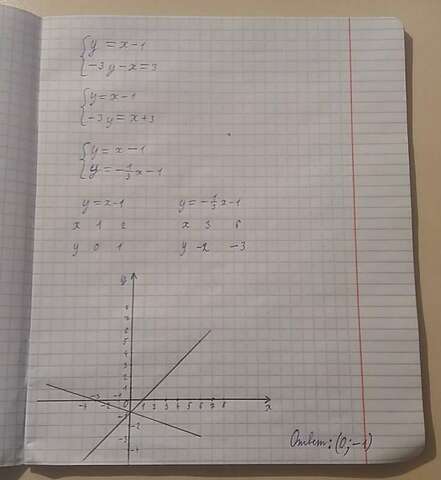 {y = x-1
{-3y-x=3
{y=x-1
{-3y=x+3
{y=x-1
{y=-1/3x-1
y=x-1 y=-1/3x-1
x 1 2 x 3 6
y 0 1 y -2 -3
y
8
7
6
5
4
3
2
1
-4 -3 -2 -1 0 1 2 3 4 5 6 7 8 x
-2
-3
-4
Ответ: (0;-1)